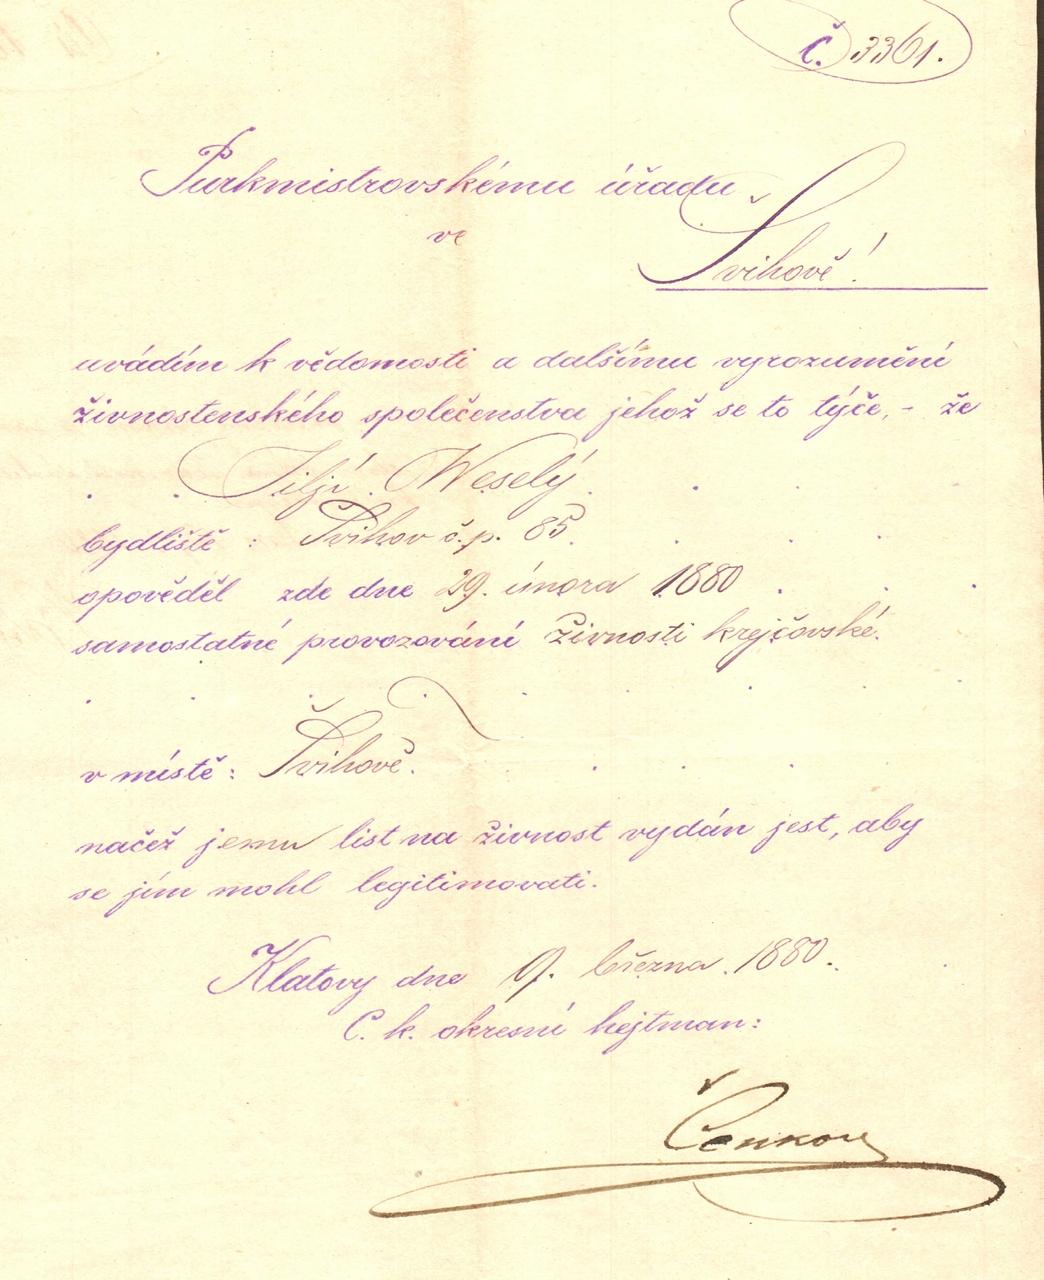 č. 3361.
Purkmistrovskému úřadu
ve
Švihově!
uvádím k vědomosti a dalšímu vyrozumění
živnostenského společenstva jehož se to týče, - že
Jiljí Weselý
bydliště : Švihov č. p. 85.
opověděl zde dne 29. února 1880
samostatné provozování živnosti krejčovské.
v místě: Švihově.
načež jemu list na živnost vydán jest, aby
se jím mohl legitimovati.
Klatovy dne 9. března 1880.
C. k. okresní hejtman: